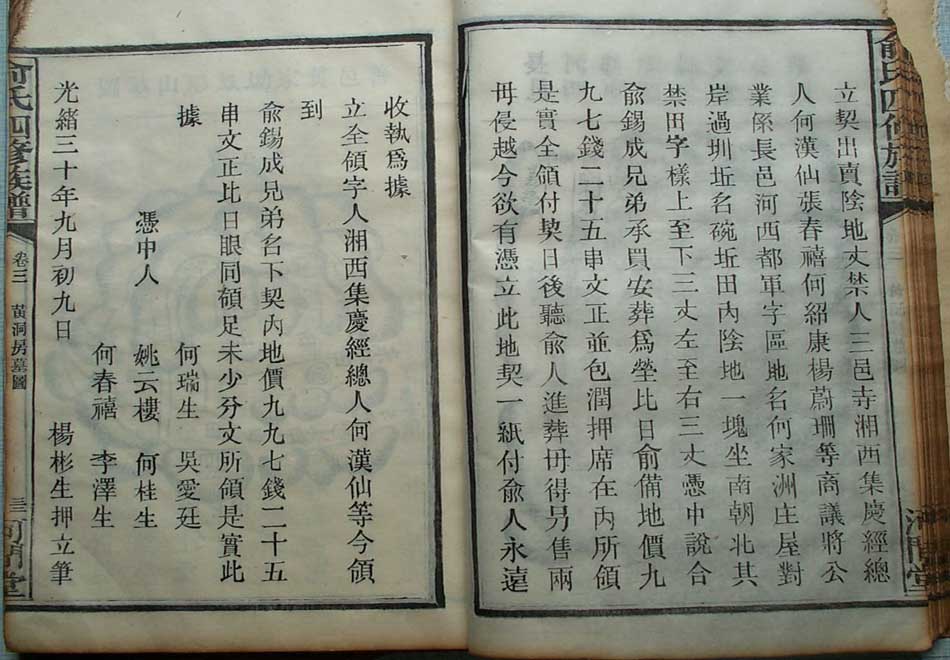 立契出賣陰地丈禁人三邑寺湘西集慶經總
人何漢仙張春禧何紹康楊蔚珊等商議將公
業係長邑河西都軍字區地名何家洲庄屋對
岸過圳坵名碗坵田內陰地一塊坐南朝北其
禁田字樣上至下三丈左至右三丈憑中說合
兪錫成兄弟承買安葬爲塋比日俞備地價九
九七錢二十五串文正並包潤押席在內所領
是實全領付契日後聽兪人進葬毋得另售兩
毋侵越今欲有憑立此地契一紙付兪人永遠
收執爲據
立全領字人湘西集慶經總人何漢仙等今領
到
兪錫成兄弟名下契內地價九九七錢二十五
串文正比日眼同領足未少分文所領是實此
據
何瑞生 吳愛廷
憑中人 姚云樓 何桂生
何春禧 李澤生
光緒三十年九月初九日 楊彬生押立筆
俞氏四修族譜 卷三 黃洞房墓圖 三 河間堂